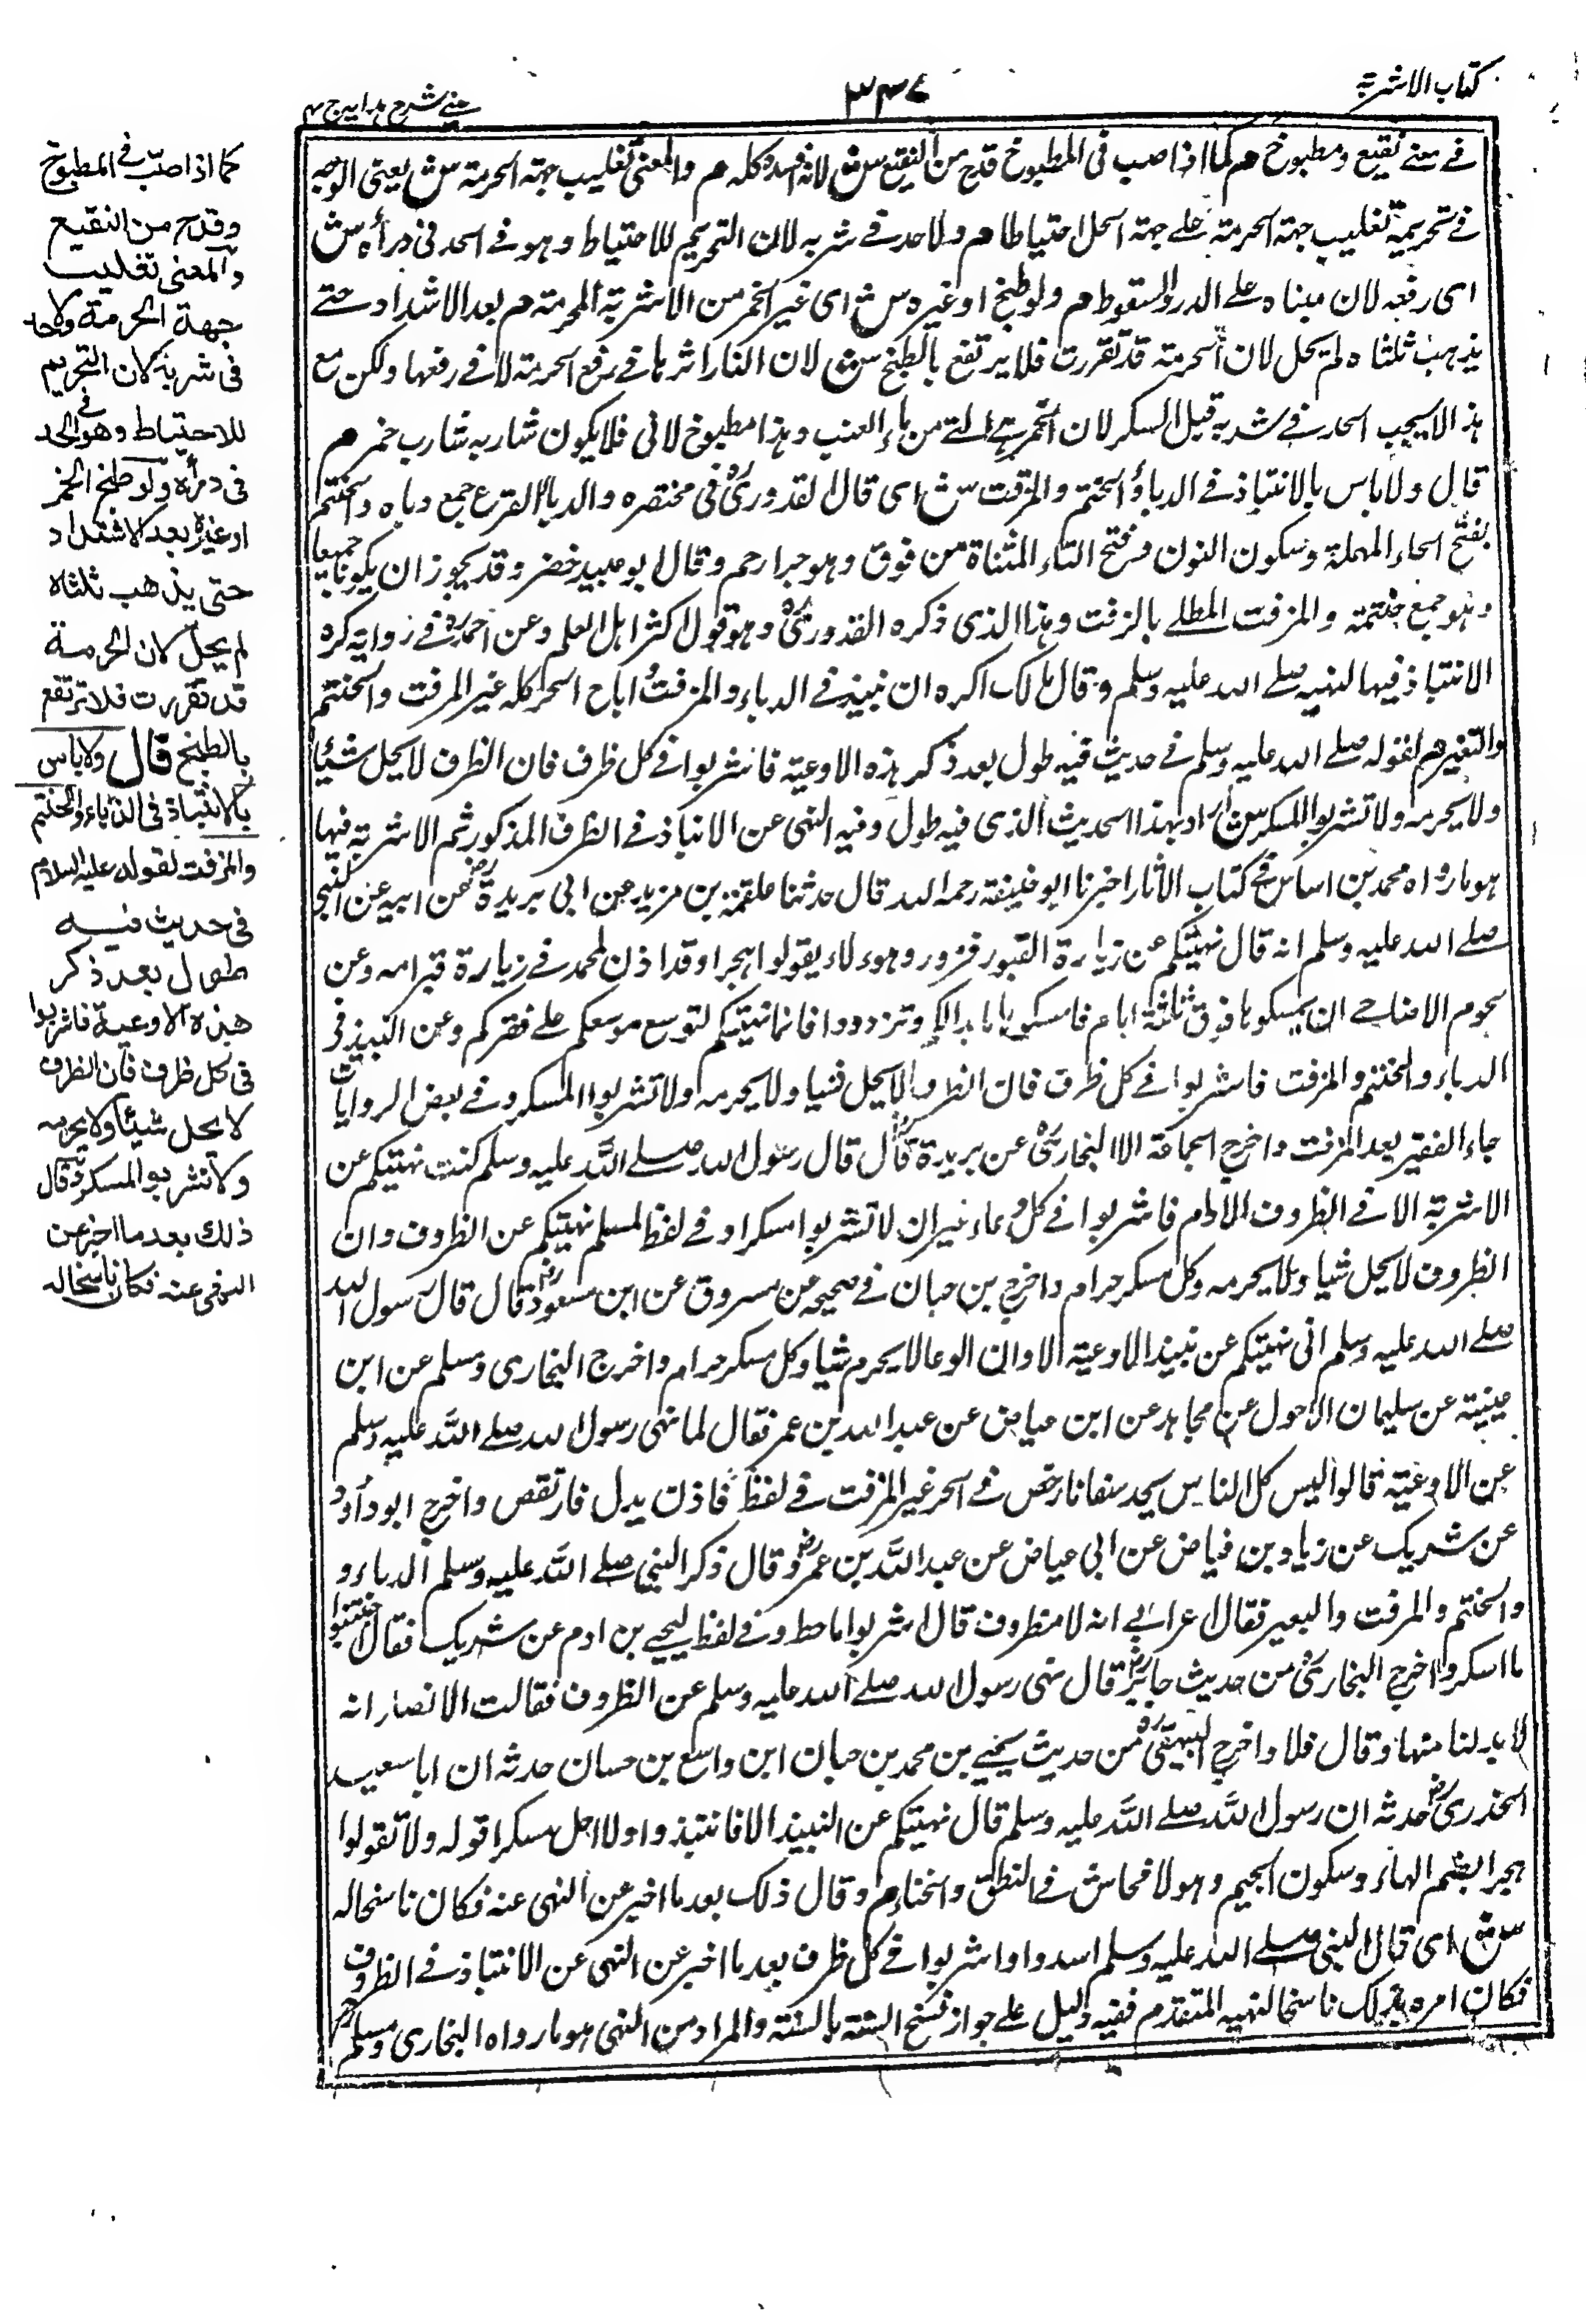 كتاب الاشربة
٣٤٧
عينے شرح هدايه ج ٤
فے معنے نقيع ومطبوخ هم كما اذا صب فى المطبوخ قدح من النقيع ش لانه افسده كله هم والمعنى تغليب جهة الحرمة ش يعنى الوجه
فے تحريمه تغليب جهة الحرمة علے جهة الحل احتياطا هم ولا حد فے شربه لان التحريم للاحتياط وهو فے الحد فى درأه ش
اى رفعه لان مبناه علے الدرء والسقوط هم ولو طبخ او غيره ش اى غير الخمر من الاشربة المحرمة هم بعد الاشتداد حتے
يذهب ثلثاه لم يحل لان الحرمة قد تقررت فلا يرتفع بالطبخ ش لان النار اثرها فے رفع الحرمة لا فے رفعها ولكن مع
هذا لا يجب الحد فے شربه قبل السكر لان الخمر هے التے من ماء العنب وهذا مطبوخ لانى فلا يكون شاربه شارب خمر هم
قال ولا باس بالانتباذ فے الدباء والحنتم والمزفت ش اى قال القدورى فى مختصره والدباء القرع جمع دباه والحنتم
بفتح الحاء المهملة وسكون النون وفتح التاء المثناة من فوق وهو جرار حمر وقال ابو عبيد خضر وقد يجوز ان يكونا جميعا
وهو جمع حنتمة والمزفت المطلے بالزفت وهذا الذى ذكره القدورى وهو قول اكثر اهل العلم وعن احمد فے رواية كره
الانتباذ فيها لنهيه صلے الله عليه وسلم وقال مالك اكره ان نبيذ فے الدباء والمزفت واباح الحر كله غير المزفت والحنتم
والنقير هم لقوله صلے الله عليه وسلم فے حديث فيه طول بعد ذكر هذه الاوعية فاشربوا فے كل ظرف فان الظرف لا يحل شيئا
ولا يحرمه ولا تشربوا المسكر ش اراد بهذا الحديث الذى فيه طول وفيه النهى عن الانباذ فے الظرف المذكور ثم الاشربة فيها
هو ما رواه محمد بن اساس فے كتاب الاثار اخبرنا ابو حنيفة رحمه الله قال حدثنا علقمة بن مزيد عن ابى بريدة عن ابيه عن النبى
صلے الله عليه وسلم انه قال نهيتكم عن زيارة القبور فزوروها ولا يقولوا هجرا وقد اذن لمحمد فے زيارة قبر امه وعن
لحوم الاضاحے ان يمسكوها فوق ثلثة ايام فامسكوها ما بدا لكم وتزودوا فانما نهيتكم لتوسع موسعكم علے فقركم وعن النبيذ فى
الدباء والحنتم والمزفت فاشربوا فے كل ظرف فان الظروف لا يحل شيا ولا يحرمه ولا تشربوا المسكر وفے بعض الروايات
جاء الفقير بعد المزفت واخرج الجماعة الا البخارى عن بريدة قال قال رسول الله صلے الله عليه وسلم كنت نهيتكم عن
الاشربة الا فے الظروف الادم فاشربوا فے كل وعاء غير ان لا تشربوا مسكرا وفے لفظ لمسلم نهيتكم عن الظروف وان
الظروف لا يحل شيا ولا يحرمه وكل مسكر حرام واخرج بن حبان فے صحيحه عن مسروق عن ابن مسعود قال قال رسول الله
صلے الله عليه وسلم انى نهيتكم عن نبيذ الاوعية الا وان الوعا لا يحرم شيا وكل مسكر حرام واخرج البخارى ومسلم عن ابن
عيينة عن سليمان الاحول عن مجاهد عن ابن عياض عن عبد الله بن عمر فقال لما نهى رسول الله صلے الله عليه وسلم
عن الاوعية قالوا ليس كل الناس يجد سقانا رخص فے الحر غير المزفت فے لفظ فاذن يدل فارتقص واخرج ابو داود
عن شريك عن زياد بن فياض عن ابى عياض عن عبد الله بن عمر وقال ذكر النبى صلے الله عليه وسلم الدباء و
والحنتم والمزفت والبعير فقال اعرابے انه لا ظروف قال اشربوا ما حط وفے لفظ ليحيے بن ادم عن شريك فقال اجتنبوا
ما اسكر واخرج البخارى من حديث جابر قال نهى رسول الله صلے الله عليه وسلم عن الظروف فقالت الانصار انه
لا بد لنا منها وقال فلا واخرج البيهقى من حديث يحيے بن محمد بن حبان ابن واسع بن حسان حدثه ان ابا سعيد
الخدرى حدثه ان رسول الله صلے الله عليه وسلم قال نهيتكم عن النبيذ الا فانتبذوا ولا احل مسكرا قوله ولا تقولوا
هجرا بضم الهاء وسكون الجيم وهو لا فحاش فے النطق والخناء هم وقال ذلك بعد ما اخبر عن النهى عنه فكان ناسخاله
ش اى قال النبى صلے الله عليه وسلم اسدوا واشربوا فے كل ظرف بعد ما اخبر عن النهى عن الانتباذ فے الظروف
فكان امره بذلك ناسخا لنهيه المتقدم ففيه دليل علے جواز نسخ السنة بالسنة والمراد من النهى هو ما رواه البخارى ومسلم
كما اذا صبّ فى المطبوخ
وقدح من النقيع
والمعنى تغليب
جهة الحرمة ولا حد
فى شربه لان التحريم
للاحتياط وهو فى الحد
فى درأه ولو طبخ الخمر
او غيره بعد الاشتداد
حتى يذهب ثلثاه
لم يحلّ لان الحرمة
قد تقررت فلا ترتفع
بالطبخ قال ولا باس
بالانتباذ فى الدباء والحنتم
والمزفت لقوله عليه السلام
فى حديث فيه
طول بعد ذكر
هذه الاوعية فاشربوا
فى كل ظرف فان الظرف
لا يحل شيئا ولا يحرمه
ولا تشربوا المسكر وقال
ذلك بعد ما اخبر عن
النهى عنه فكان ناسخاله